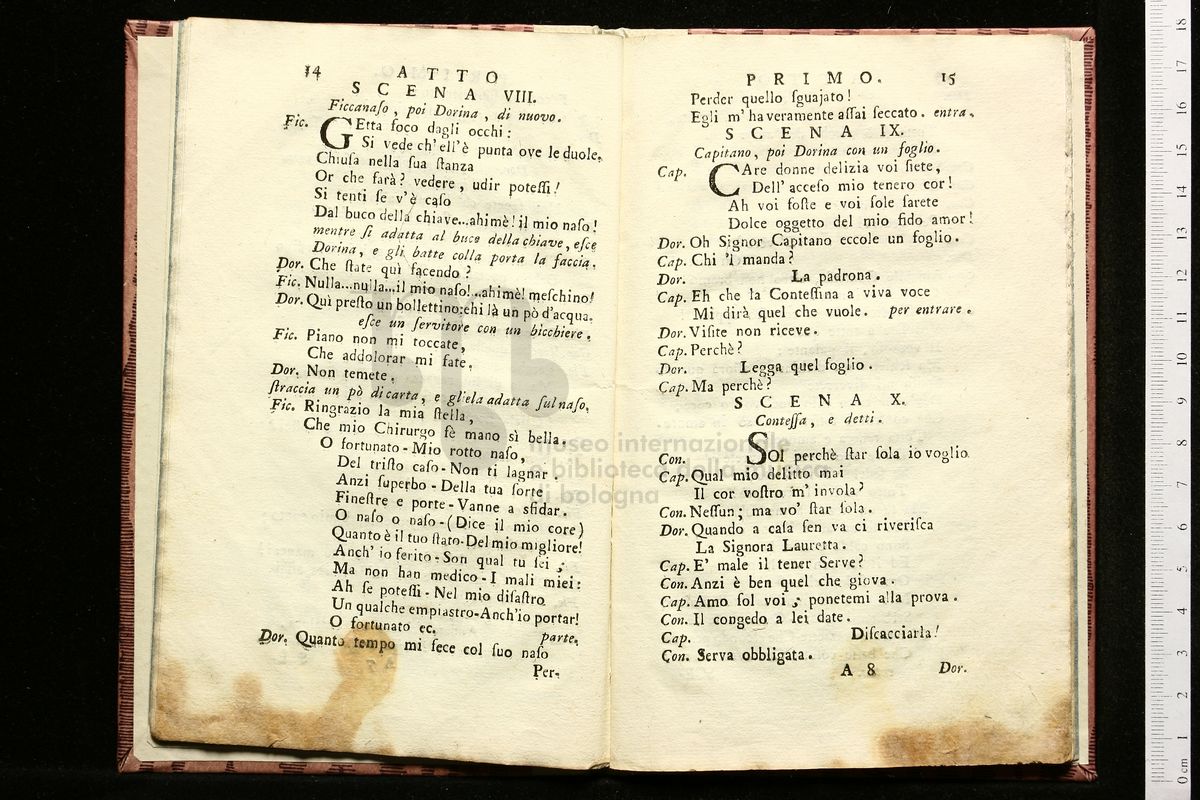 14 ATTO
SCENA VIII.
Ficcanaſo, poi Dorina, di nuovo.
Fic. GEtta foco dagli occhi:
Si vede ch'ell'è punta ove le duole.
Chiuſa nella ſua ſtanza
Or che farà? vedere, udir poteſſi!
Si tenti ſe v'è caſo
Dal buco della chiave...ahimè! il mio naſo!
mentre ſi adatta al buco della chiave, eſce
Dorina, e gli batte colla porta la faccia.
Dor. Che ſtate quì facendo?
Fic. Nulla...nulla...il mio naſo!..ahimè! meſchino!
Dor. Quì preſto un bollettino: chi là un pò d'acqua.
eſce un ſervitore con un bicchiere.
Fic. Piano non mi toccate,
Che addolorar mi fate.
Dor. Non temete.
ſtraccia un pò di carta, e gliela adatta ſul naſo.
Fic. Ringrazio la mia ſtella,
Che mio Chirurgo fè mano sì bella.
O fortunato - Mio rotto naſo,
Del triſto caſo - Non ti lagnar.
Anzi ſuperbo - Della tua ſorte
Fineſtre e porte - Vanne a sfidar.
O naſo o naſo - (Dice il mio core)
Quanto è il tuo ſtato - Del mio migliore!
Anch' io ferito - Son qual tu ſei;
Ma non han medico - I mali miei:
Ah ſe poteſſi - Nel mio diſaſtro
Un qualche empiaſtro - Anch'io portar!
O fortunato ec. parte.
Dor. Quanto tempo mi fece col ſuo naſo
Per-
PRIMO. 15
Perder quello ſguajato!
Egli m' ha veramente aſſai ſeccato. entra.
SCENA IX.
Capitano, poi Dorina con un foglio.
Cap. CAre donne delizia voi ſiete,
Dell' acceſo mio tenero cor!
Ah voi foſte e voi ſole ſarete
Dolce oggetto del mio fido amor!
Dor. Oh Signor Capitano eccole un foglio.
Cap. Chi 'l manda?
Dor. La padrona.
Cap. Eh che la Conteſſina a viva voce
Mi dirà quel che vuole. per entrare.
Dor. Viſite non riceve.
Cap. Perchè?
Dor. Legga quel foglio.
Cap. Ma perchè?
SCENA X.
Conteſſa, e detti.
Con. SOl perchè ſtar ſola io voglio
Cap. Qual mio delitto mai
Il cor voſtro m' invola?
Con. Neſſun; ma vo' ſtar ſola.
Dor. Quando a caſa ſen va ci riveriſca
La Signora Lauretta.
Cap. E' male il tener Serve?
Con. Anzi è ben quel che giova.
Cap. Amo ſol voi; ponetemi alla prova.
Con. Il congedo a lei date.
Cap. Diſcacciarla!
Con. Serva obbligata.
A 8 Dor.
museo internazionale
e biblioteca della musica
di bologna
0 cm 1 2 3 4 5 6 7 8 9 10 11 12 13 14 15 16 17 18